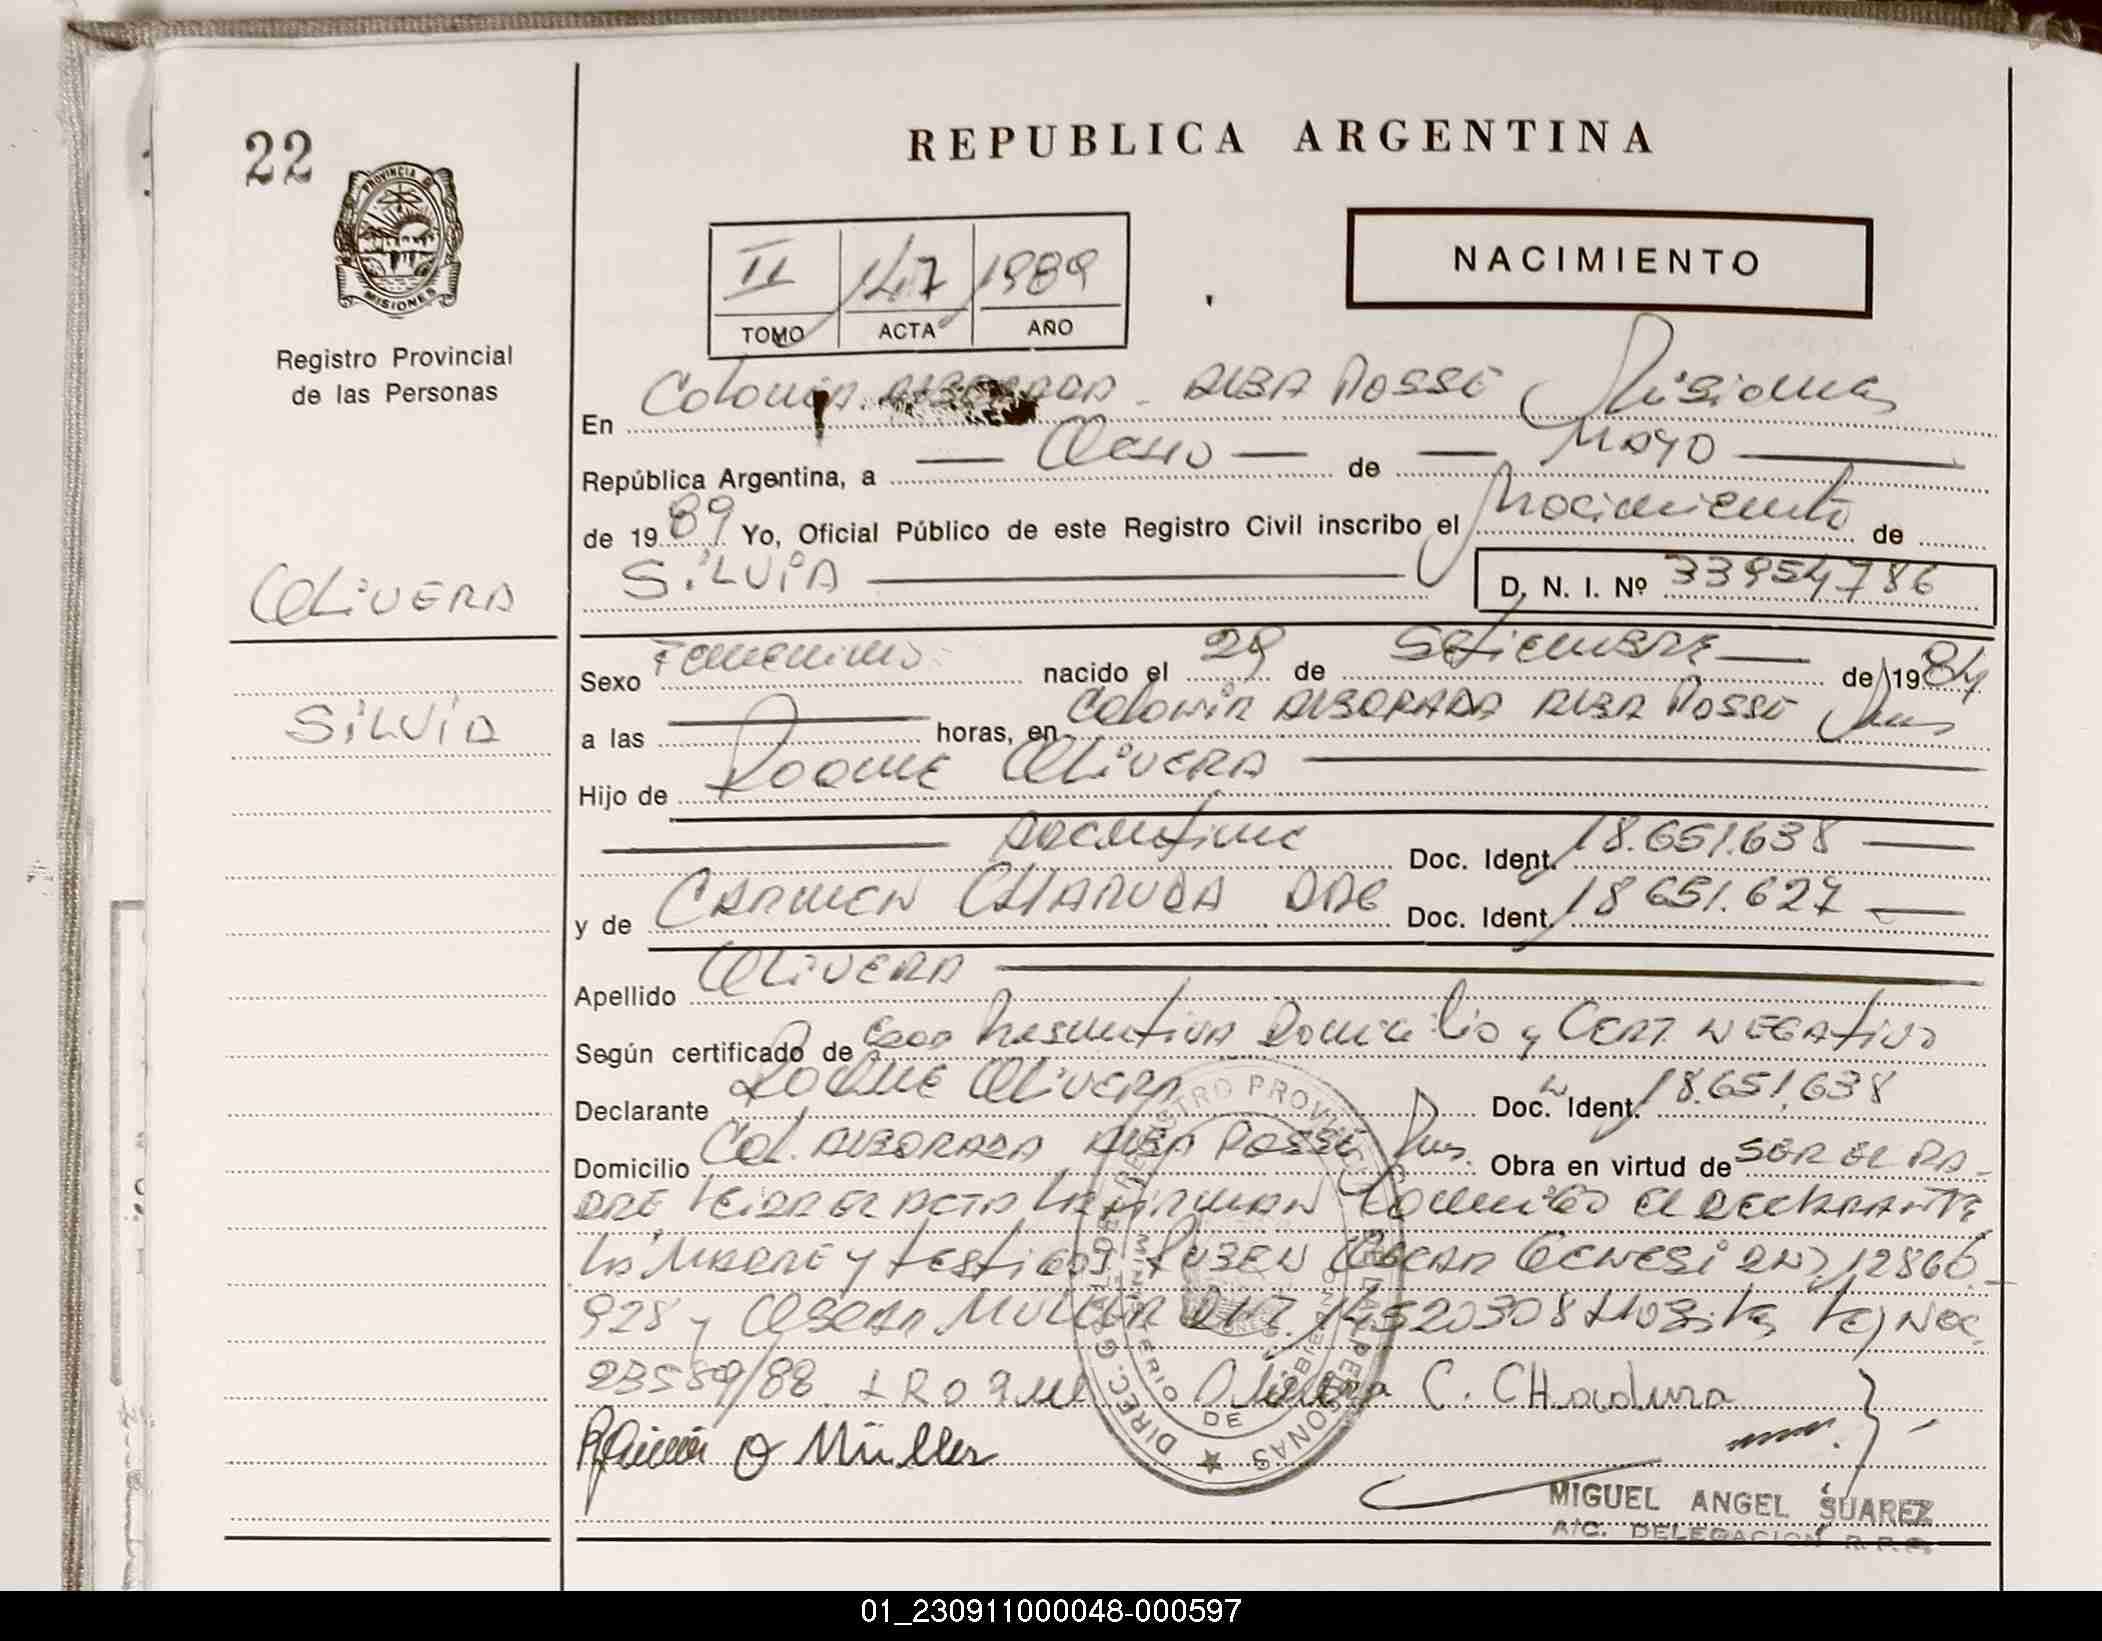 22
REPUBLICA ARGENTINA
PROVINCIA DE
MISIONES
NACIMIENTO
II 147 1989
TOMO ACTA AÑO
Registro Provincial
de las Personas
En Colonia ALBORADA - ALBA POSSE Misiones
República Argentina, a Ocho de MAYO
de 1989 Yo, Oficial Público de este Registro Civil inscribo el Nacimiento de
OLIVERA
SILVIA D. N. I. Nº 33954786
Sexo Femenino nacido el 29 de Setiembre de 1984
SILVIA
a las horas, en Colonia ALBORADA ALBA POSSE Mnes
Hijo de ROQUE OLIVERA
Argentino Doc. Ident. 18.651.638
y de CARMEN Doc. Ident. 18651.627
Apellido OLIVERA
Según certificado de Presuntiva Domicilio y CERT. NEGATIVO
Declarante ROQUE OLIVERA Doc. Ident. 18.651.638
Domicilio Col. ALBORADA ALBA POSSE Mnes. Obra en virtud de SER EL PA-
DRE LEIDA EL ACTA LA FIRMAN Conmigo el DECLARANTE
LA MADRE y testigos RUBEN OSCAR 12860
928 y OSCAR MULLER DNI. 14520308 Ley Nac.
23559/88 ROQUE Olivera C. CHadura
O Müller
DIREC. GRAL. DEL REGISTRO PROVINCIAL DE LAS PERSONAS
MINISTERIO DE GOBIERNO
MIGUEL ANGEL SUAREZ
A/C. DELEGACION R. P. P.
01_230911000048-000597